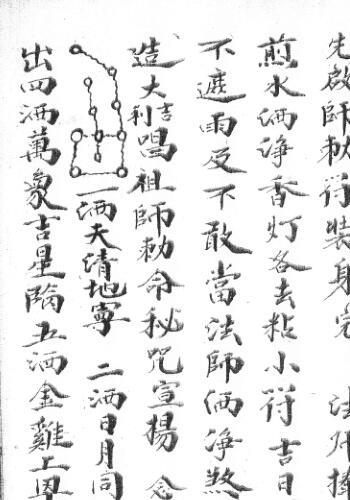 先啟師敕符裝身完 法师
煎水洒淨香灯各去粘小符吉日
不遮雨反不敢當法師洒淨煞
造大吉利唱祖師勅令秘咒宣揚 念
一洒天清地寧 二洒日月同
出四洒萬象吉星隨五洒金雞